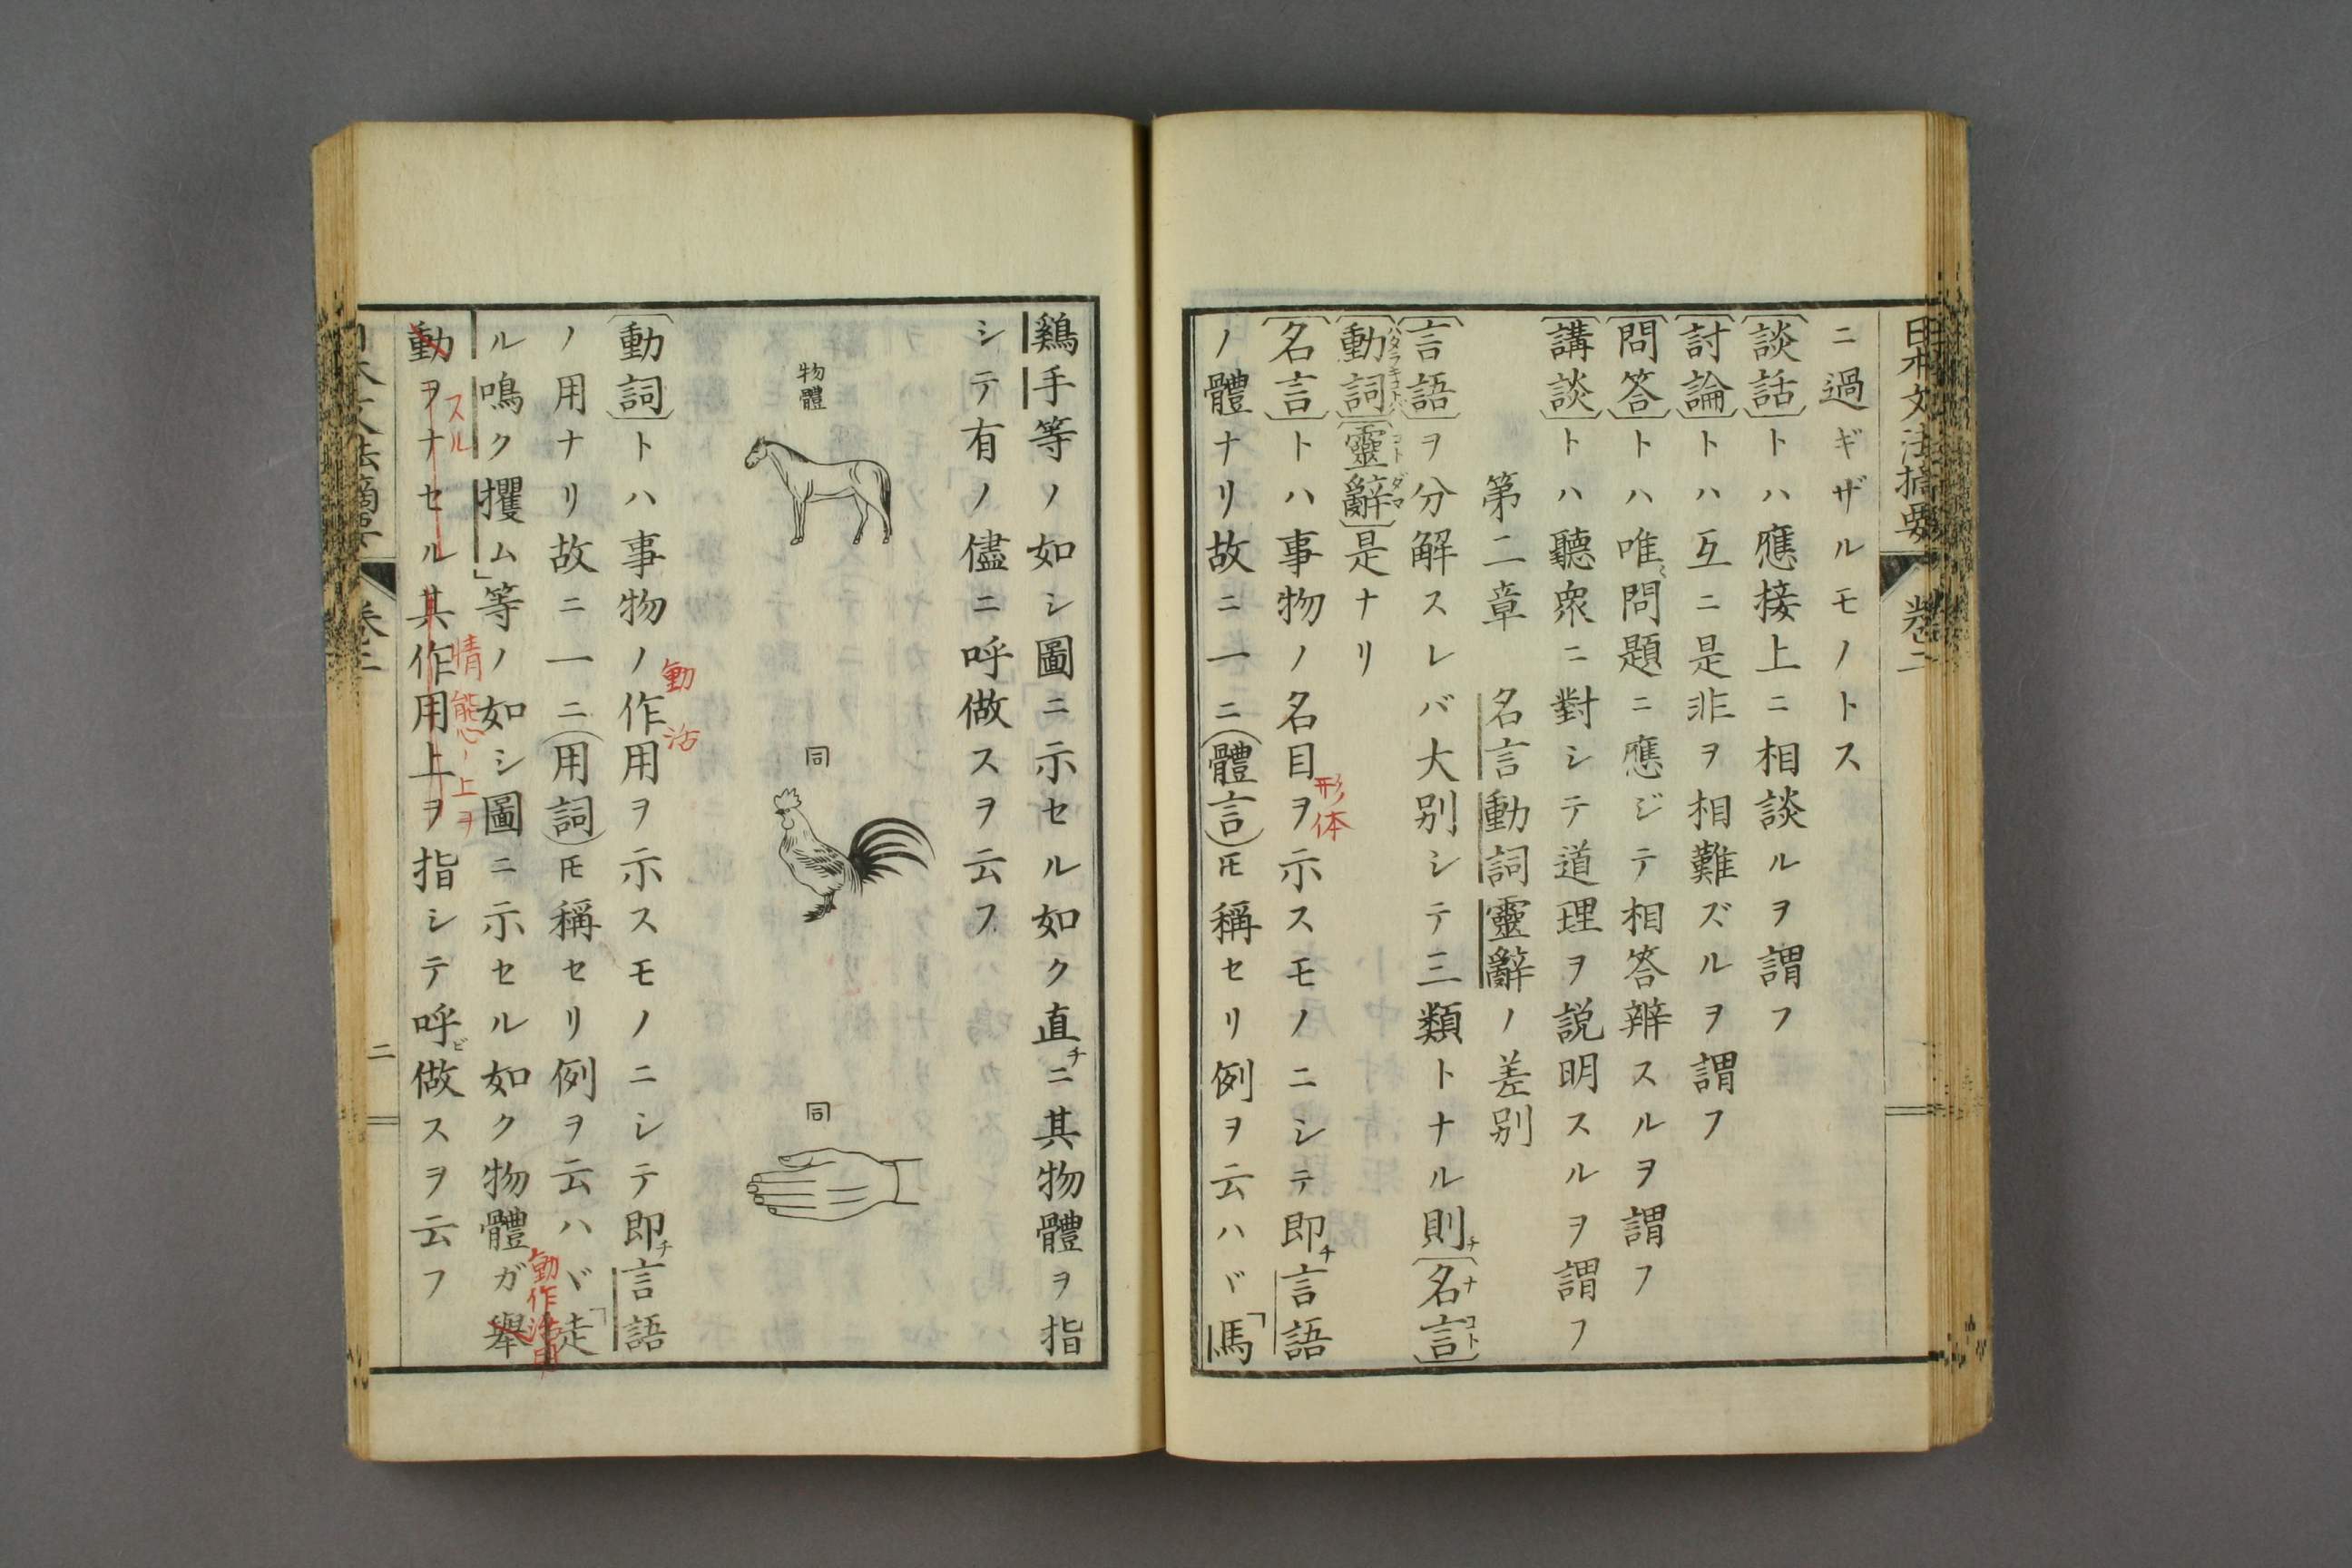 日本文法摘要
卷二
ニ過ギザルモノトス
〔談話〕トハ應接上ニ相談ルヲ謂フ
〔討論〕トハ互ニ是非ヲ相難ズルヲ謂フ
〔問答〕トハ唯〻問題ニ應ジテ相答辨スルヲ謂フ
〔講談〕トハ聽衆ニ對シテ道理ヲ説明スルヲ謂フ
第二章 名言動詞靈辭ノ差別
〔言語〕ヲ分解スレバ大別シテ三類トナル則チ〔名言〕
ナコト
〔動詞〕〔靈辭〕是ナリ
ハタラキコトバ
コトダマ
〔名言〕トハ事物ノ名目ヲ示スモノニシテ即チ言語
形体
ノ體ナリ故ニ一ニ(體言)𪜈稱セリ例ヲ云ハヾ「馬
鷄手等ノ如シ圖ニ示セル如ク直チニ其物體ヲ指
シテ有ノ儘ニ呼做スヲ云フ
物體
同
同
〔動詞〕トハ事物ノ作用ヲ示スモノニシテ即チ言語
動活
ノ用ナリ故ニ一ニ(用詞)𪜈稱セリ例ヲ云ハヾ「走
ル鳴ク攫ム」等ノ如シ圖ニ示セル如ク物體ガ舉
動作活用
動ヲナセル其作用上ヲ指シテ呼ビ做スヲ云フ
スル
情態ノ上ヲ
日本文法摘要
卷二
二